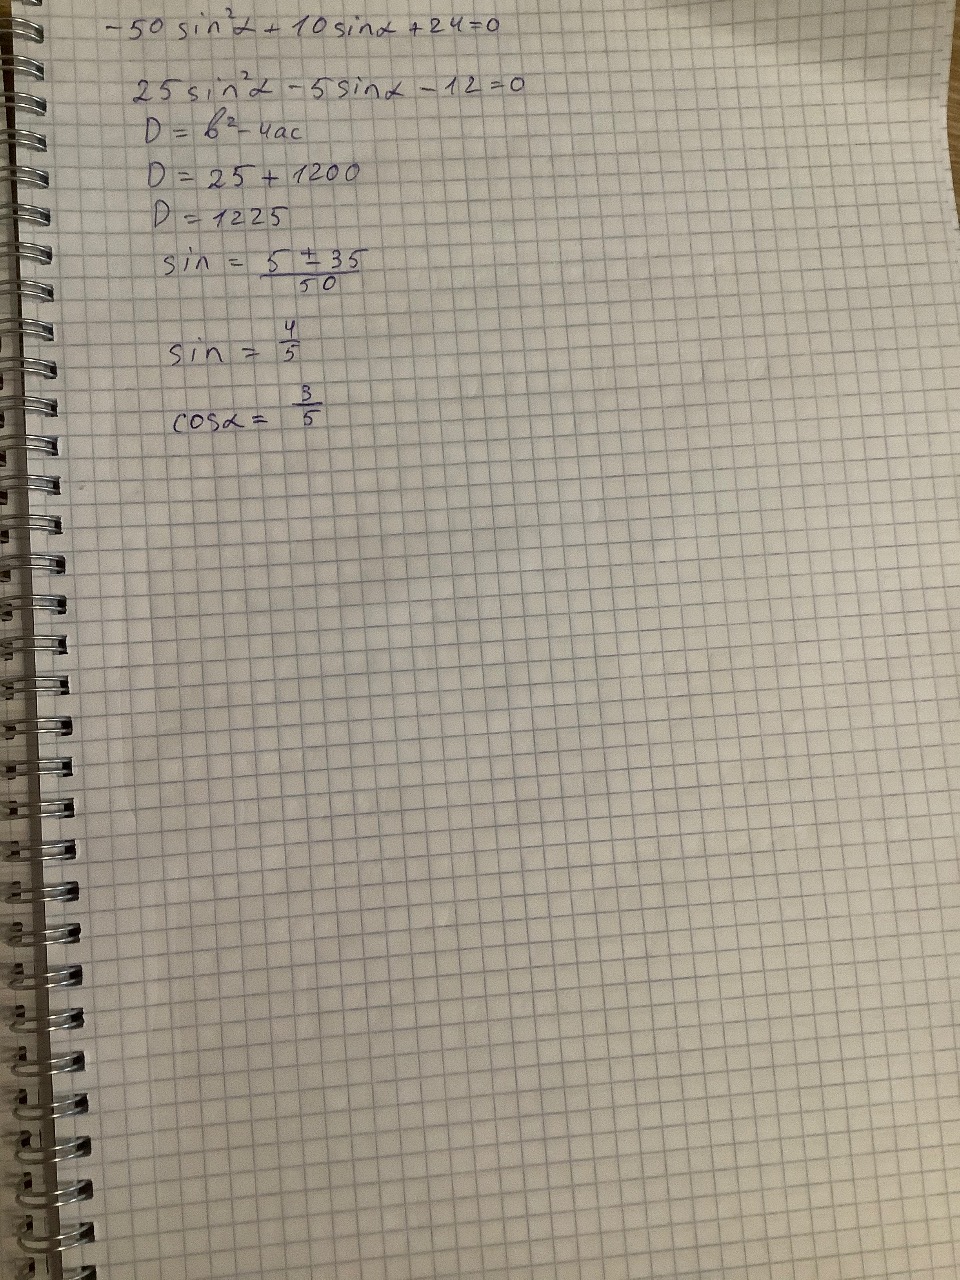 -50 sin²α + 10 sinα + 24 = 0
25 sin²α - 5 sinα - 12 = 0
D = b² - 4ac
D = 25 + 1200
D = 1225
sin = (5 ± 35)/50
sin = 4/5
cosα = 3/5